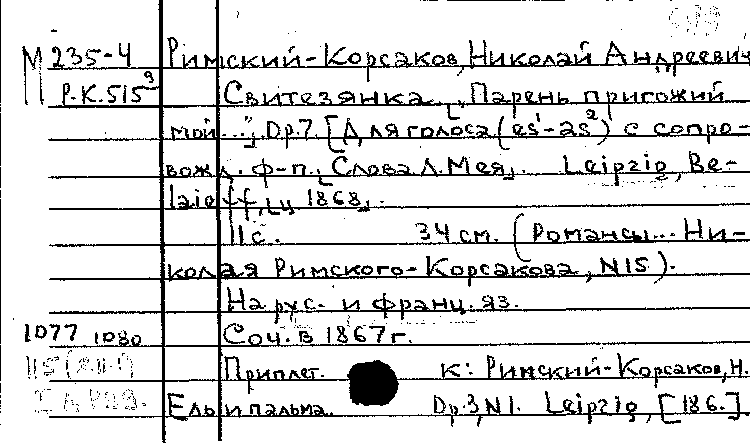 М 235-4 Римский-Корсаков, Николай Андреевич
Р.К.515⁹ Свитезянка. „Парень пригожий
мой..." Ор.7. [Для голоса (es¹-as²) с сопро-
вожд. ф-п. Слова Л. Мея. Leipzig, Be-
laieff, ц 1868.
11 с. 34 см. (Романсы... Ни-
колая Римского-Корсакова, N15).
На рус. и франц. яз.
1077 1080 Соч. в 1867 г.
115 Приплет. к: Римский-Корсаков, Н.
Ель и пальма. Ор.3, N1. Leipzig, [186.]